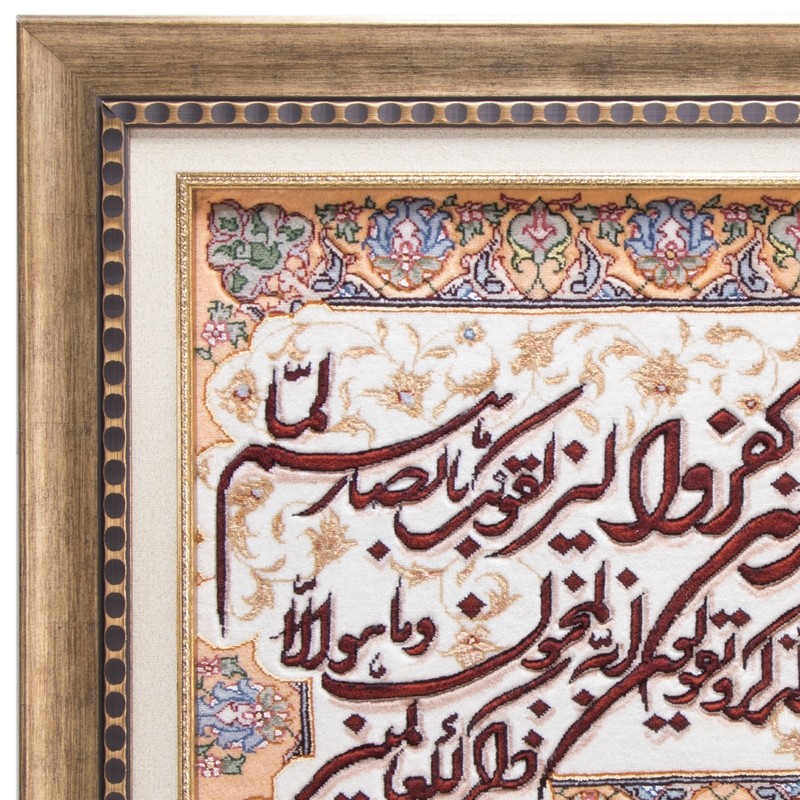 كفروا ليزلقونك بابصارهم لما
الذكر ويقولون انه لمجنون وما هو الا
ذكر للعالمين